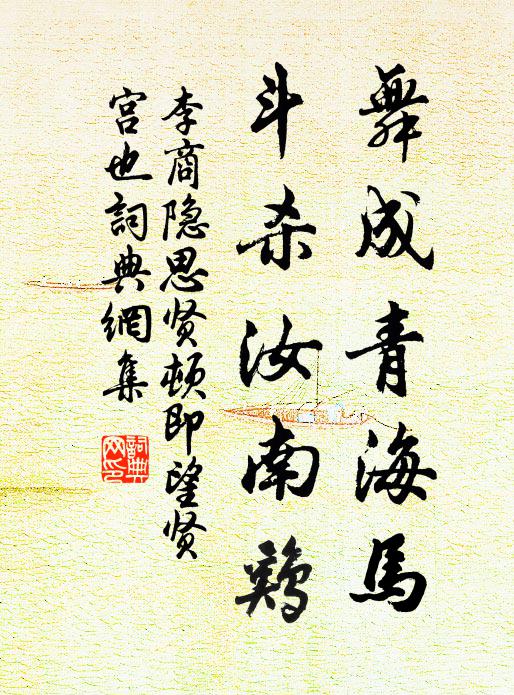 舞成青海马
斗杀汝南鷄
李商隐思贤顿即望贤
宫也詞典網集
詞典网印